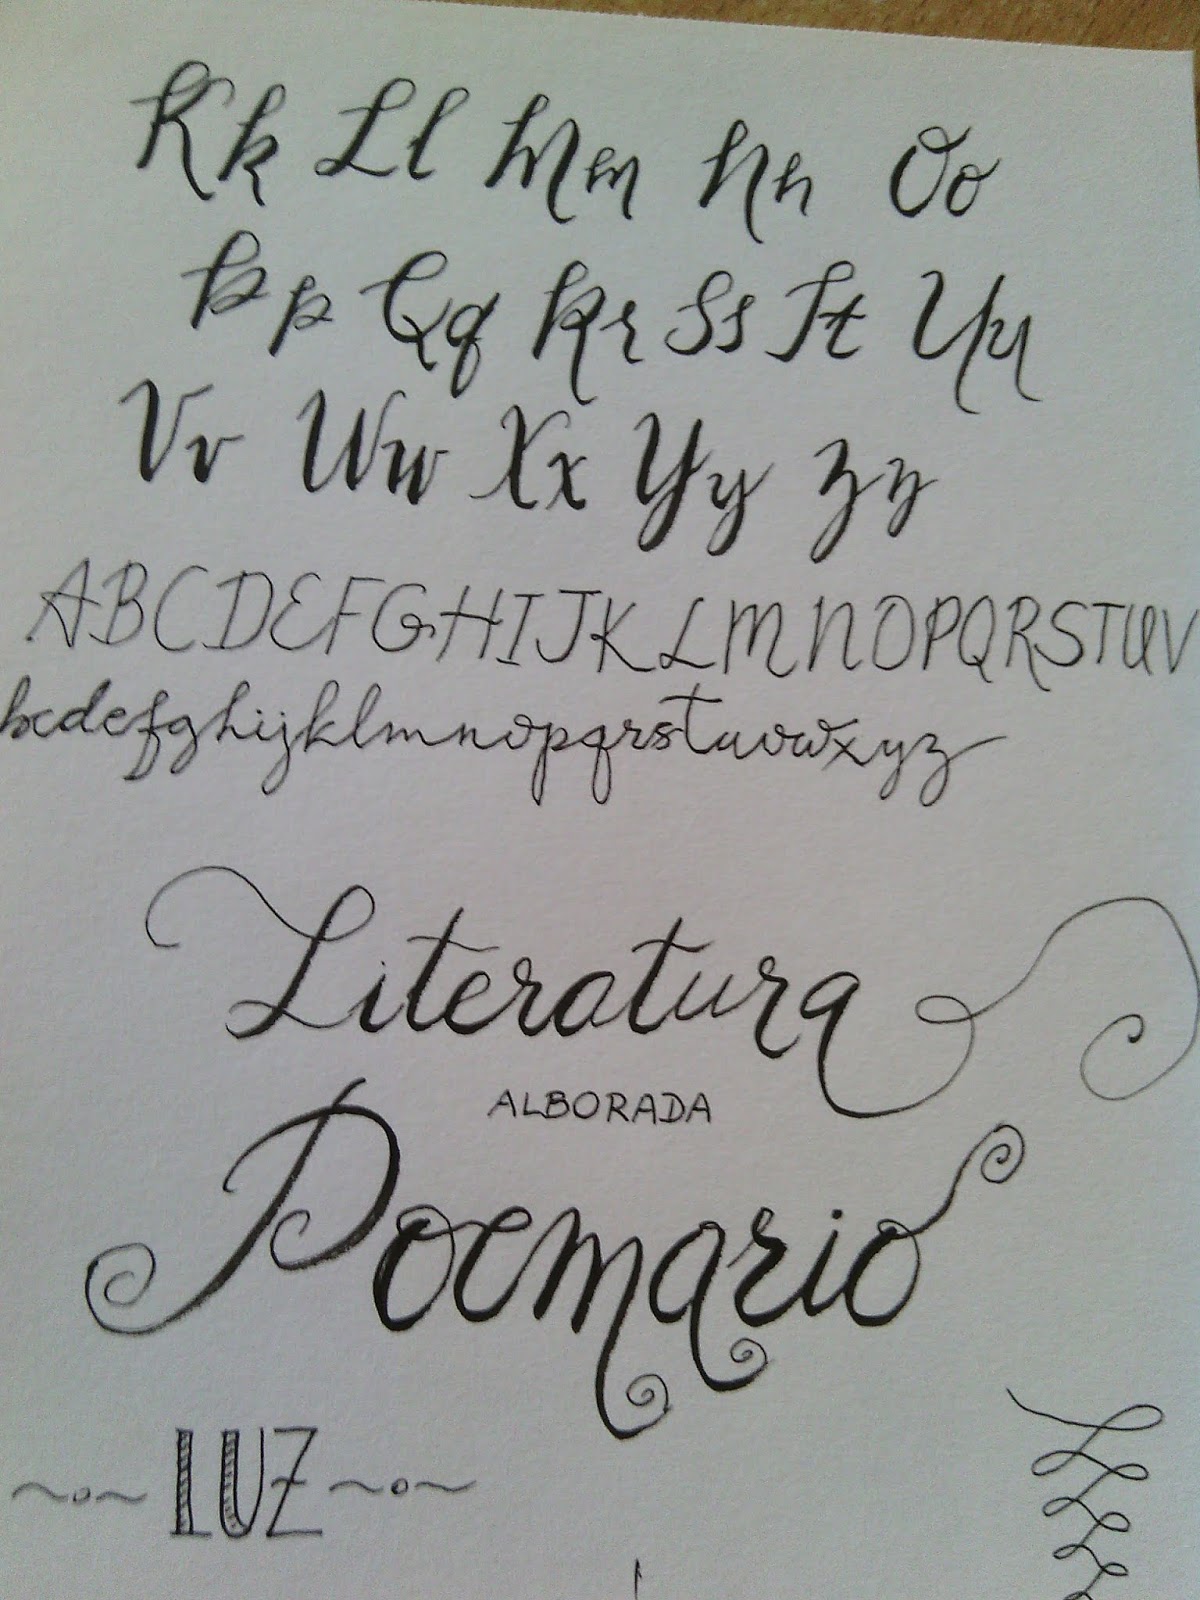 Kk Ll Mm Nn Oo
Pp Qq Rr Ss Tt Uu
Vv Ww Xx Yy Zz
ABCDEFGHIJKLMNOPQRSTUV
bcdefghijklmnopqrstuvwxyz
Literatura
ALBORADA
Poemario
~o~ LUZ ~o~